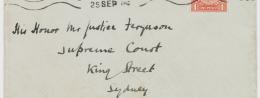 25 SEP
His Honor Mr Justice Ferguson
Supreme Court
King Street
Sydney